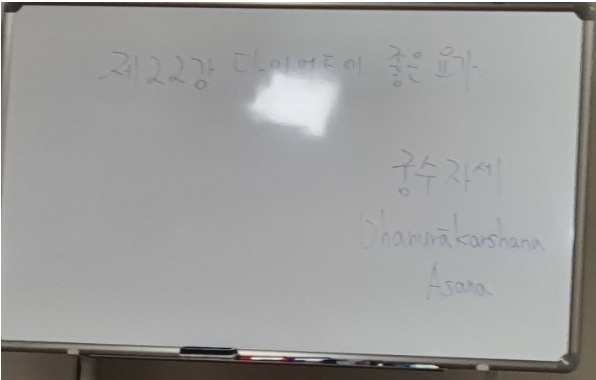 제22강 다이어트에 좋은 요가
궁수자세
Dhanurākarshana
Asana